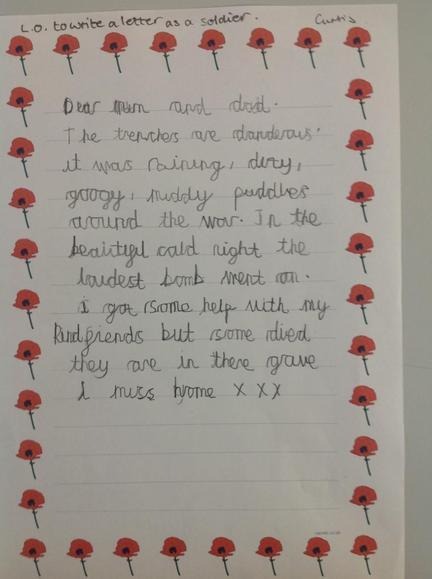 L.O. to write a letter as a soldier. Curtis
Dear mum and dad.
The trenches are danderous.
it was raining, dirty,
googy, muddy puddles
around the war. In the
beautiful cald night the
loudest bomb went on.
i got some help with my
kind friends but some died
they are in there grave
I miss home x x x